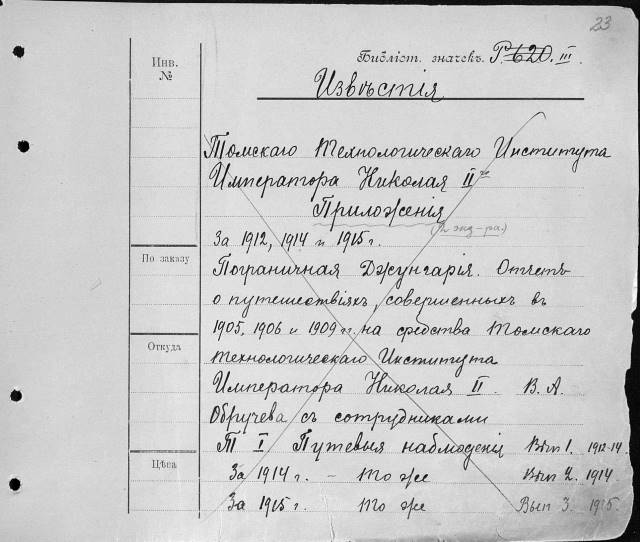 23
Инв. №
Библіот. значекъ. Р. 620. III.
Извѣстія
Томскаго Технологическаго Института
Императора Николая II го
Приложенія
(2 экз-ра.)
За 1912, 1914 и 1915 г.
По заказу
Пограничная Джунгарія. Отчетъ
о путешествіяхъ, совершенныхъ въ
1905, 1906 и 1909 гг. на средства Томскаго
Откуда
Технологическаго Института
Императора Николая II. В. А.
Обручева съ сотрудниками
Т I Путевыя наблюденія Вып 1. 1912-14.
Цѣна
За 1914 г. – То же Вып 2. 1914
За 1915 г. То же Вып 3. 1915.